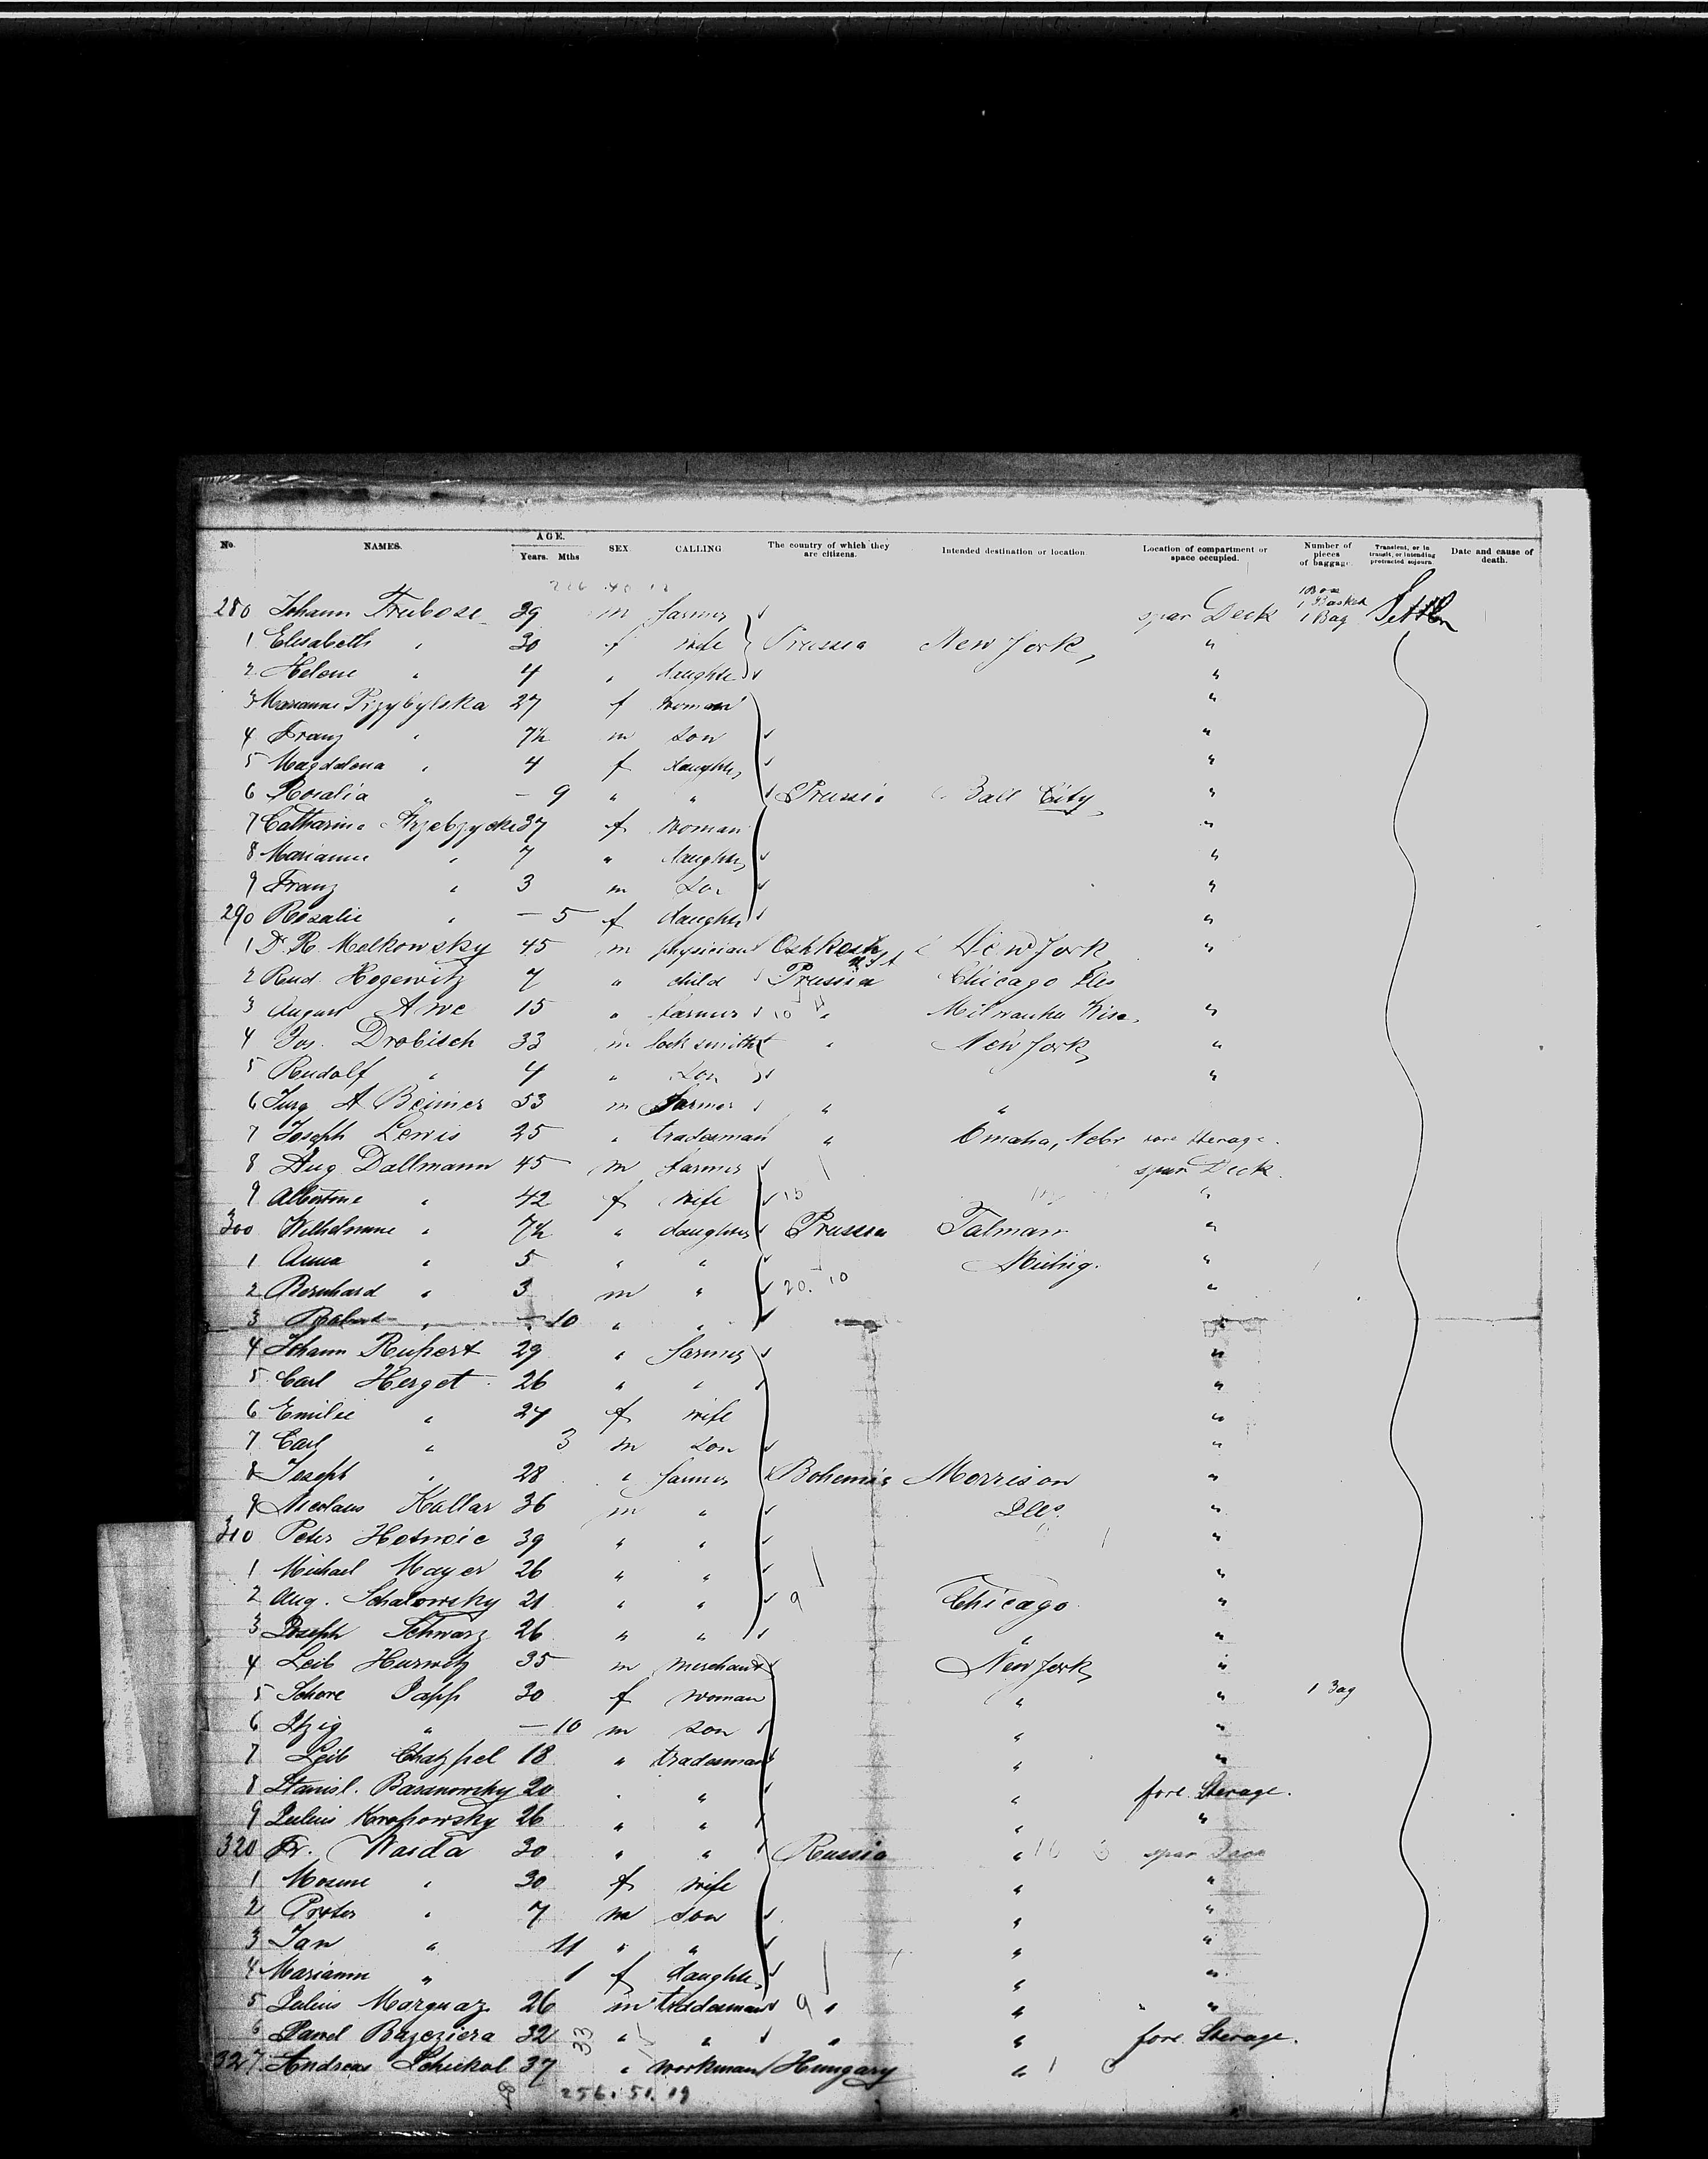 No. NAMES. AGE. Years. Mths SEX. CALLING The country of which they are citizens. Intended destination or location Location of compartment or space occupied. Number of pieces of baggage. Transient, or in transit, or intending protracted sojourn. Date and cause of death.
280 Johann Trubose 39 m farmer spar Deck 1 Box 1 Basket 1 Bag Settler
1 Elisabeth " 30 f wife Prussia New York, "
2 Helene " 4 " daughter "
3 Marianne Przybylska 27 f woman "
4 Franz " 7½ m son "
5 Magdalena " 4 f daughter "
6 Rosalia " — 9 " " Prussia Ball City "
7 Catharina 37 f woman "
8 Marianne " 7 " daughter "
9 Franz " 3 m son "
290 Rosalie " — 5 f daughter "
1 Dr R. Melkowsky 45 m physician Oshkosh New York "
2 Rud Hegewitz 7 " child Prussia Chicago Ills
3 August Awe 15 " farmer 10 " Milwaukee Wisc. "
4 Jos. Drobisch 33 m lock smith " New York "
5 Rudolf " 4 " son "
6 Jurg A Beimer 53 m farmer " "
7 Joseph Lewis 25 " tradesman " Omaha, Nebr fore Sterage.
8 Aug. Dallmann 45 m farmer spar Deck.
9 Albertine " 42 f wife "
300 Wilhelmine " 7½ " daughter Prussia Talman "
1 Anna " 5 " " Michig. "
2 Bernhard " 3 m " 20. 10 "
3 Robert " — 10 " " "
4 Johann Rupert 29 " farmer "
5 Carl Herget 26 " " "
6 Emilie " 24 f wife "
7 Carl " 3 m son "
8 Joseph " 28 " farmer Bohemia Morrison "
9 Nicolaus Kallar 36 m " Ills. "
310 Peter Hotwoic 39 " " "
1 Michael Mayer 26 " " "
2 Aug. Schalowsky 21 " " 9 Chicago "
3 Joseph Schwarz 26 " " " "
4 Leib Hurwitz 35 m merchant New York "
5 Schore Papp 30 f woman " " 1 Bag
6 Itzig " — 10 m son " "
7 Leib Chatzpel 18 " tradesman " "
8 Stanisl. Basanowsky 20 " " " fore Sterage.
9 Julius Krapowsky 26 " " " "
320 Fr. Waida 30 " " Russia " spar Deck
1 " 30 f wife " "
2 " 7 m son " "
3 Jan " 11 " " " "
4 Marianne " 1 f daughter " "
5 Julius Marquaz 26 m tradesman 9 " " "
6 Pawel Bajeziera 32 " " " " fore Sterage.
327 Andreas Schickol 37 " workman Hungary "
33
256. 51. 19